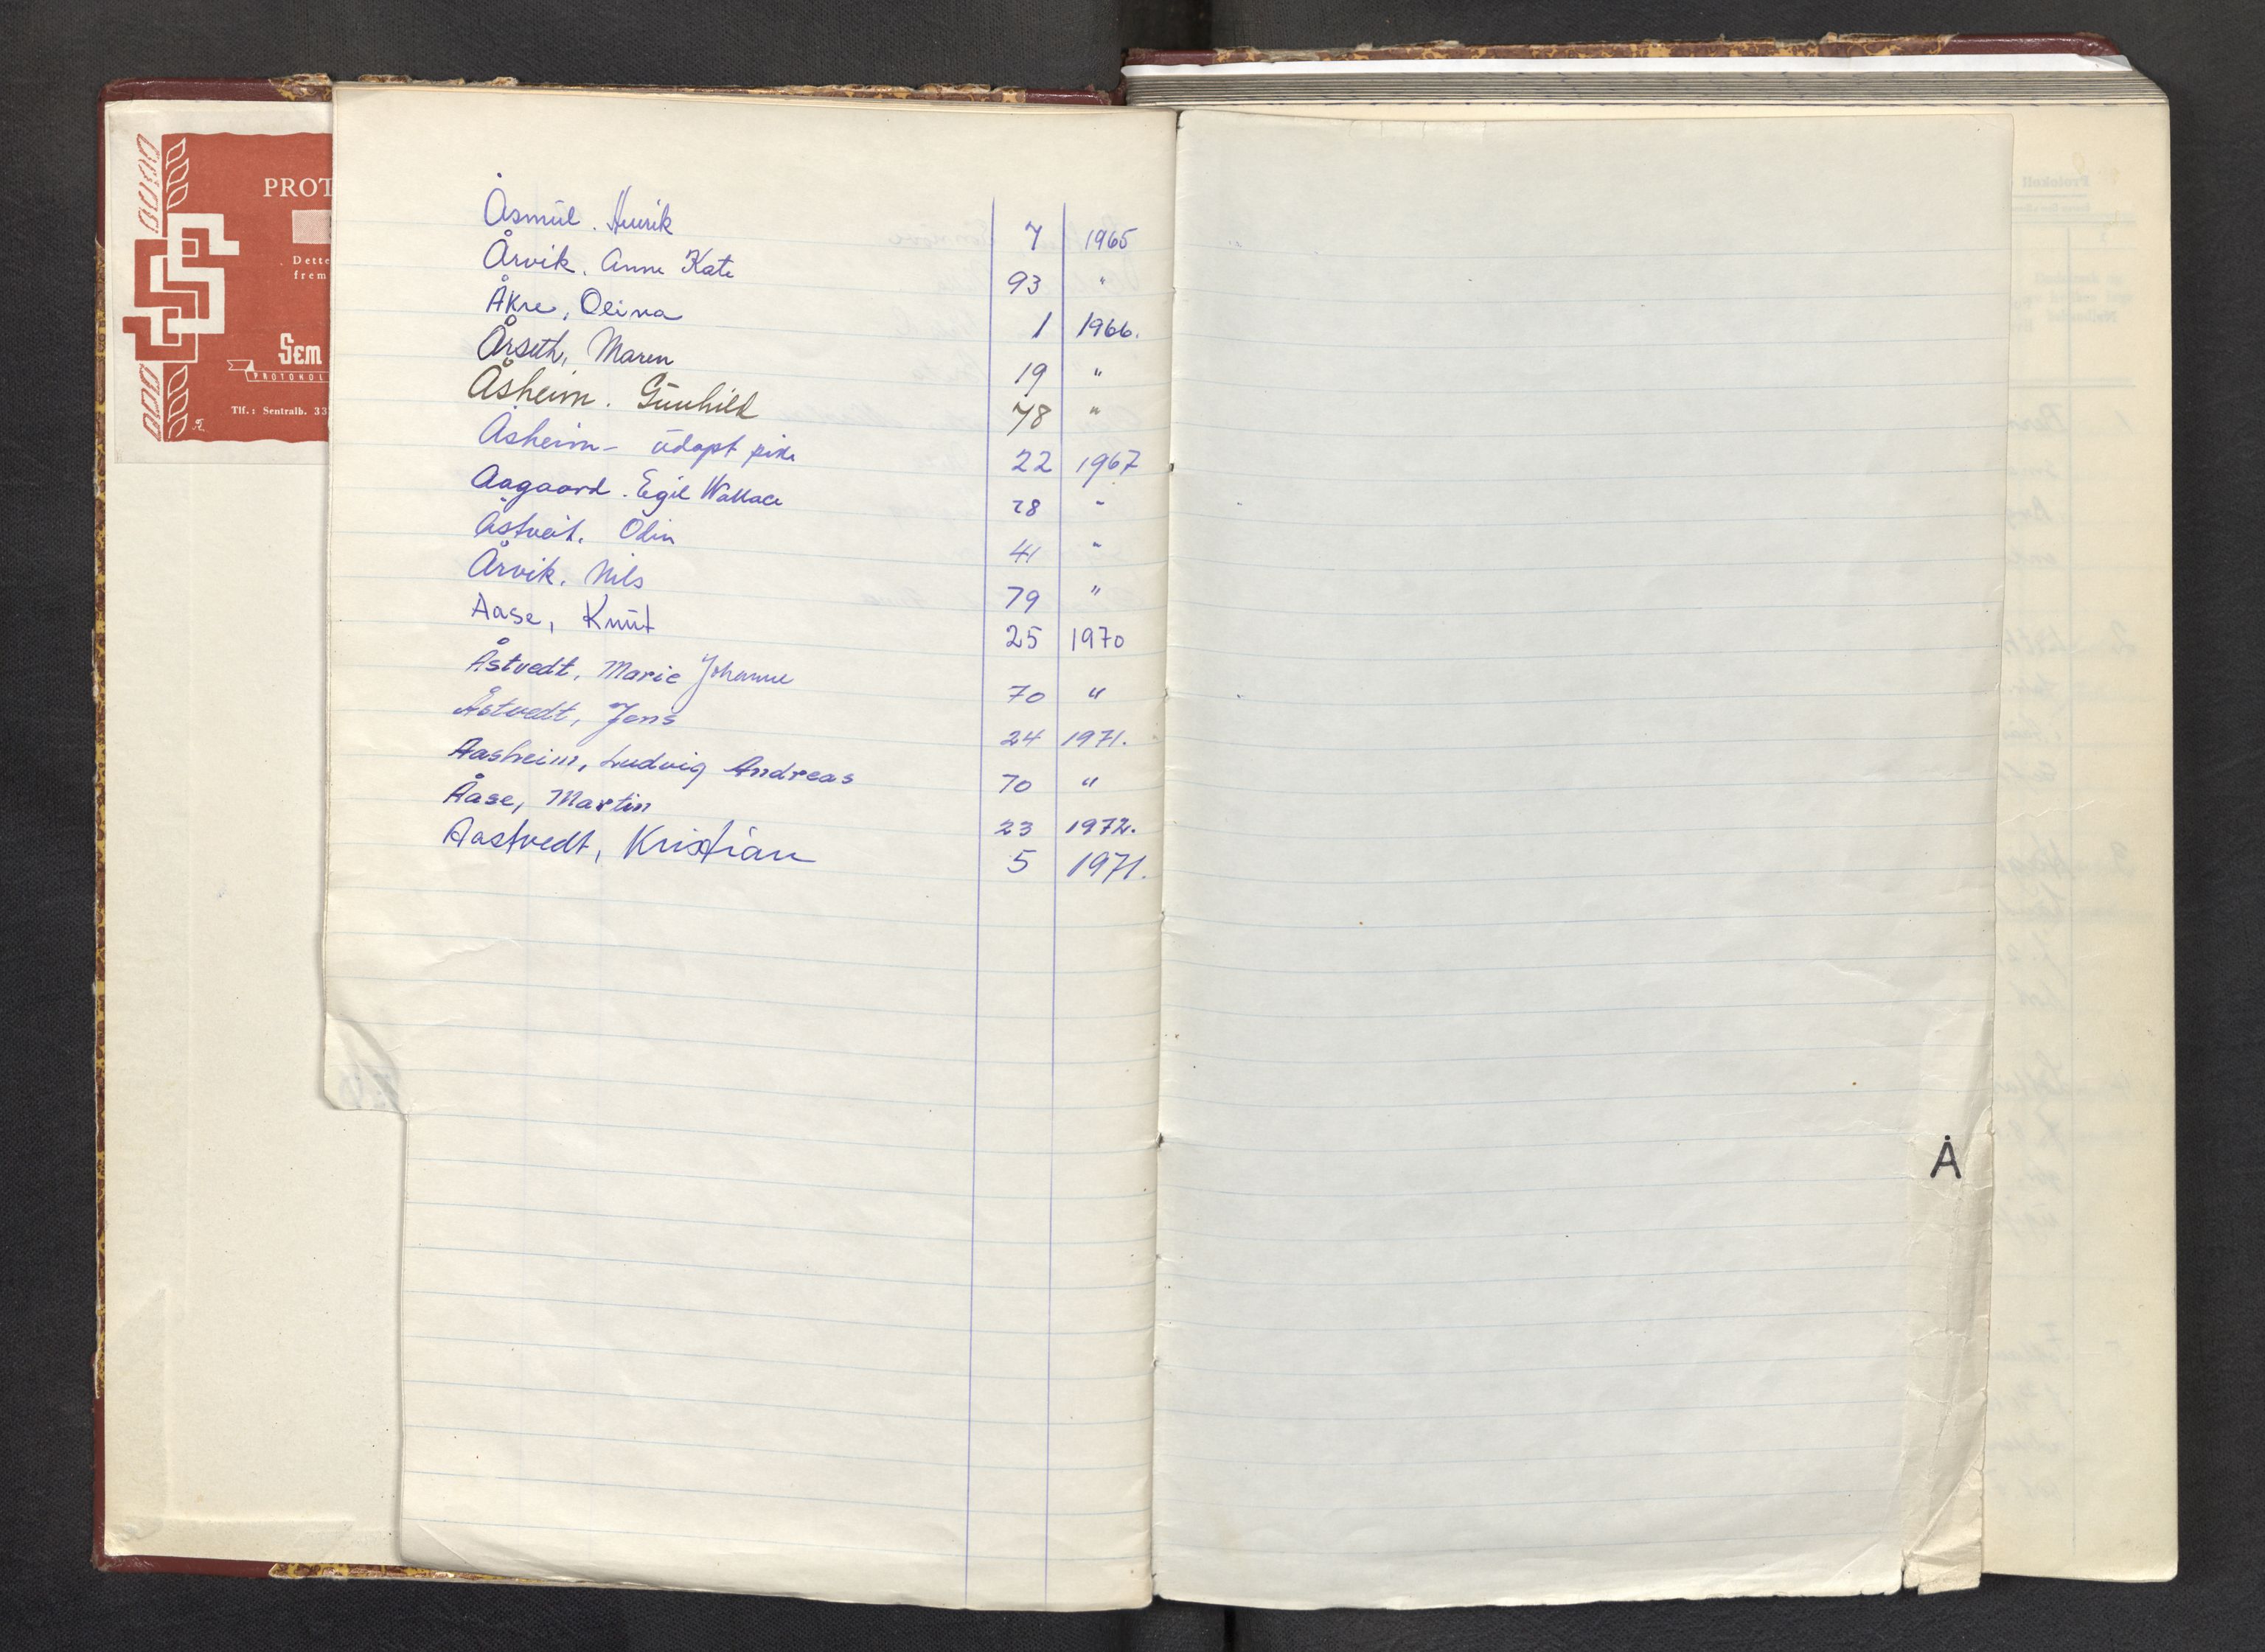 PROT
Dette
frem
SEM
PROTOKOL
Tlf.: Sentralb. 33
Åsmul. Henrik 7 1965
Årvik. Anne Kate 93 "
Åkre, Olina 1 1966.
Årseth, Maren 19 "
Åsheim. Gunhild 78 "
Åsheim - udøpt pike 22 1967
Aagaard. Egil Wallace 28 "
Åstveit. Odin 41 "
Årvik. Nils 79 "
Aase, Knut 25 1970
Åstvedt, Marie Johanne 70 "
Åstvedt, Jens 24 1971.
Aasheim, Ludvig Andreas 70 "
Åase, Martin 23 1972.
Aastvedt, Kristian 5 1971.
Å
Protokoll